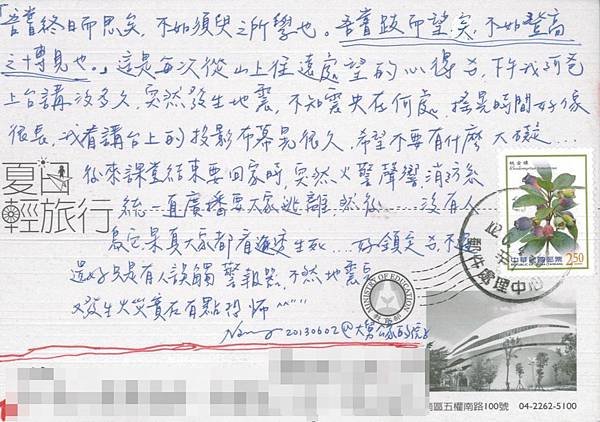 「吾嘗終日而思矣,不如須臾之所學也。吾嘗跂而望矣,不如登高
之博見也。」這是每次從山上往遠處望的心得吉,下午我阿爸
上台講沒多久,突然發生地震,不知震央在何處,搖晃時間好像
很長,我看講台上的投影布幕晃很久,希望不要有什麼大礙...
後來課堂結束要回家時,突然火警聲響,消防系
統一直廣播要大家逃離 然後... 沒有人
果真大家都看透生死... 好鎮定
還好只是有人誤觸警報器,不然地震
又發生火災實在有點恐怖
Nancy 20130602@大
夏日
輕旅行
中華民國郵票
2.50
郵件處理中心
MINISTRY OF EDUCATION
教育部
區五權南路100號 04-2262-5100